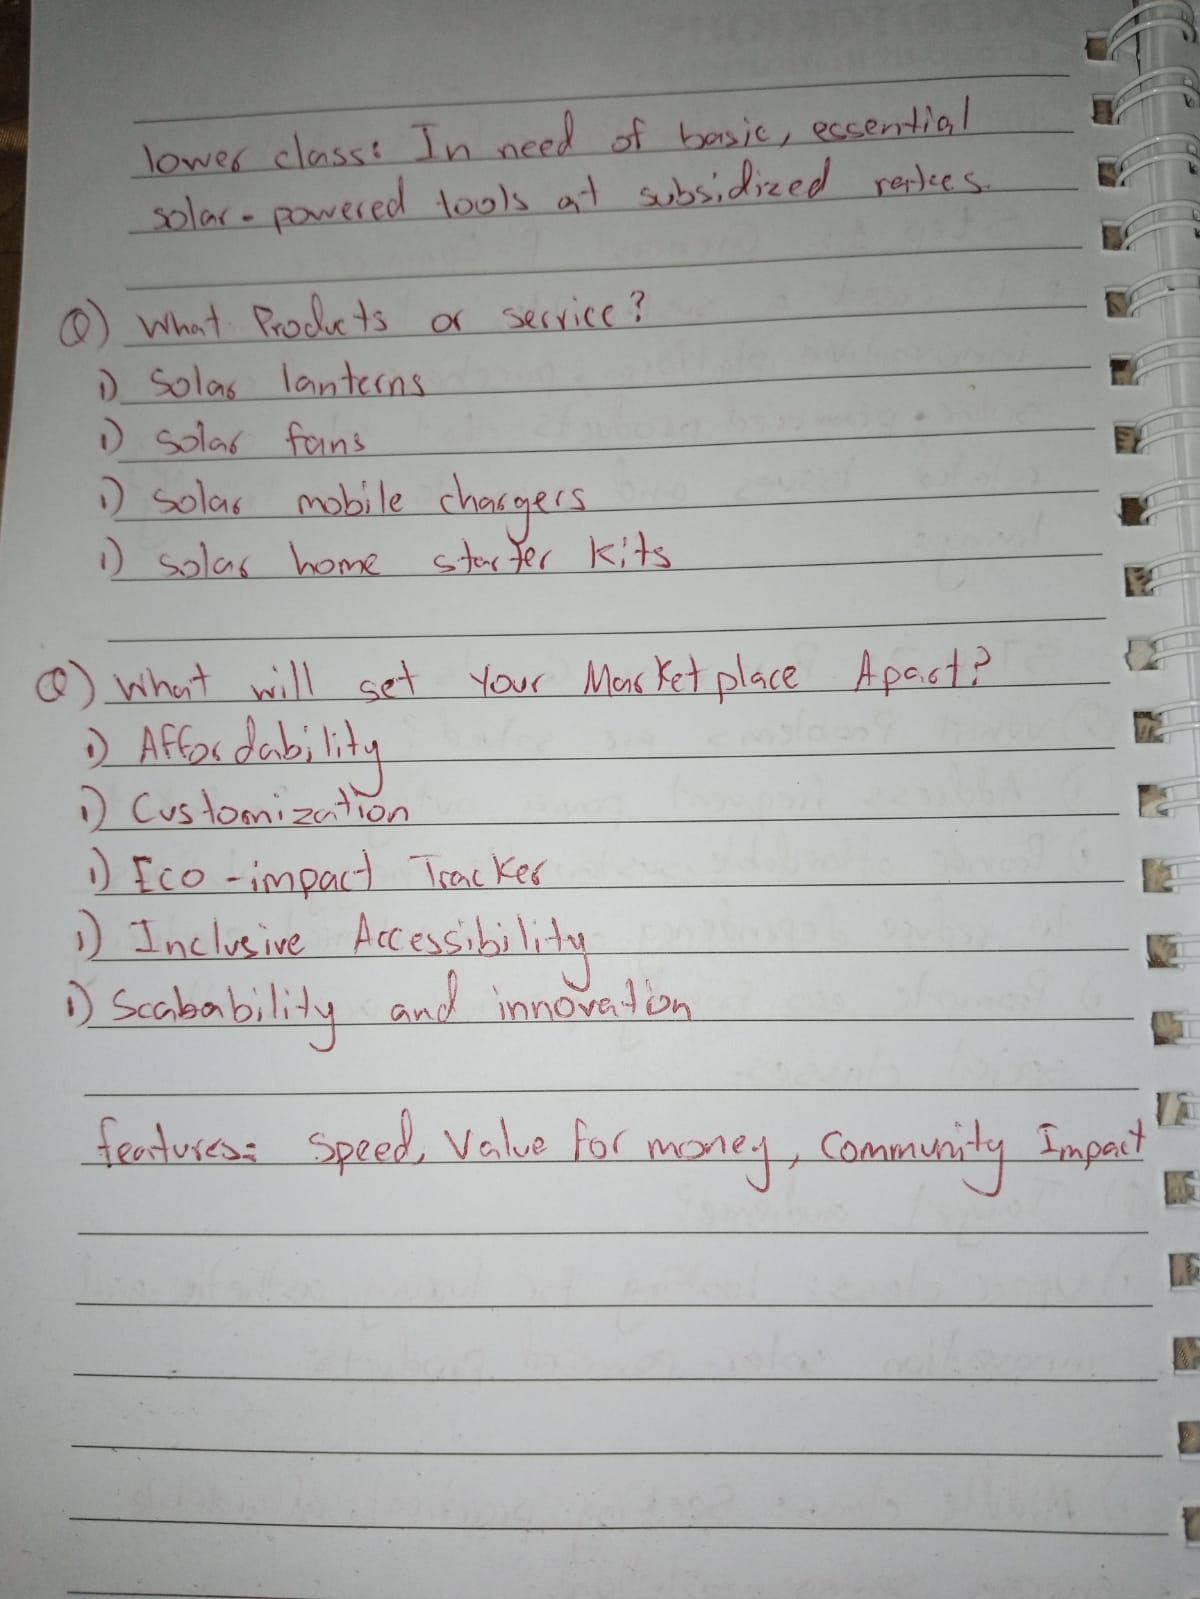 lower class: In need of basic, essential
solar-powered tools at subsidized rates.
Q) What Products or service?
i) Solar lanterns
i) solar fans
i) solar mobile chargers
i) solar home starter kits
Q) What will set Your Marketplace Apart?
i) Affordability
i) Customization
i) Eco-impact Tracker
i) Inclusive Accessibility
i) Scabability and innovation
features: Speed, Value for money, Community Impact